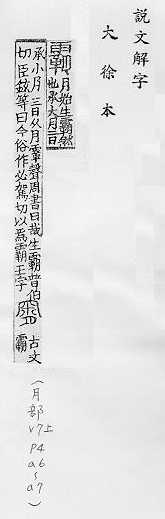 説文解字
大徐本
霸月始生霸然
也承大月二日
承小月三日从月䨣聲周書曰哉生霸普伯
切臣鉉等曰今俗作必駕切以爲霸王字
古文
霸
(月部 v7上 p4 a6~a7)